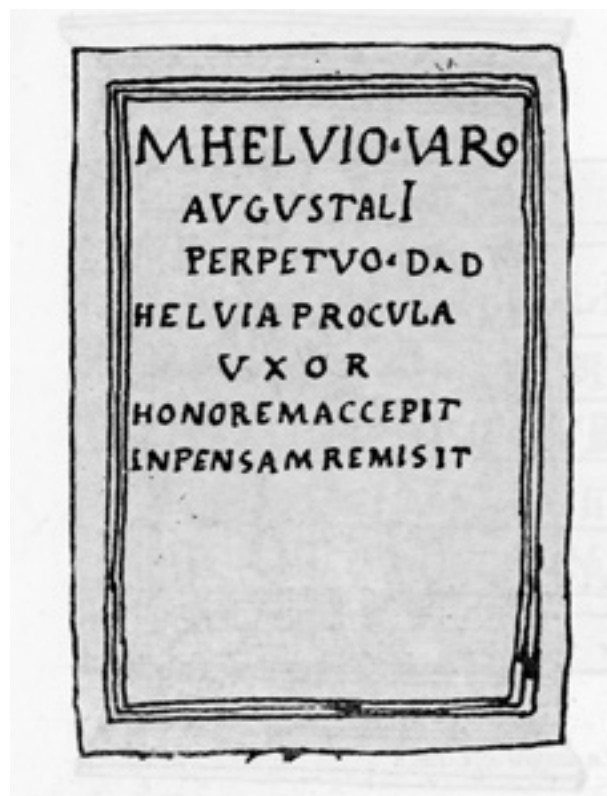 M HELVIO · VARO
AVGVSTALI
PERPETVO · D · D
HELVIA PROCVLA
VXOR
HONOREM ACCEPIT
INPENSAM REMISIT